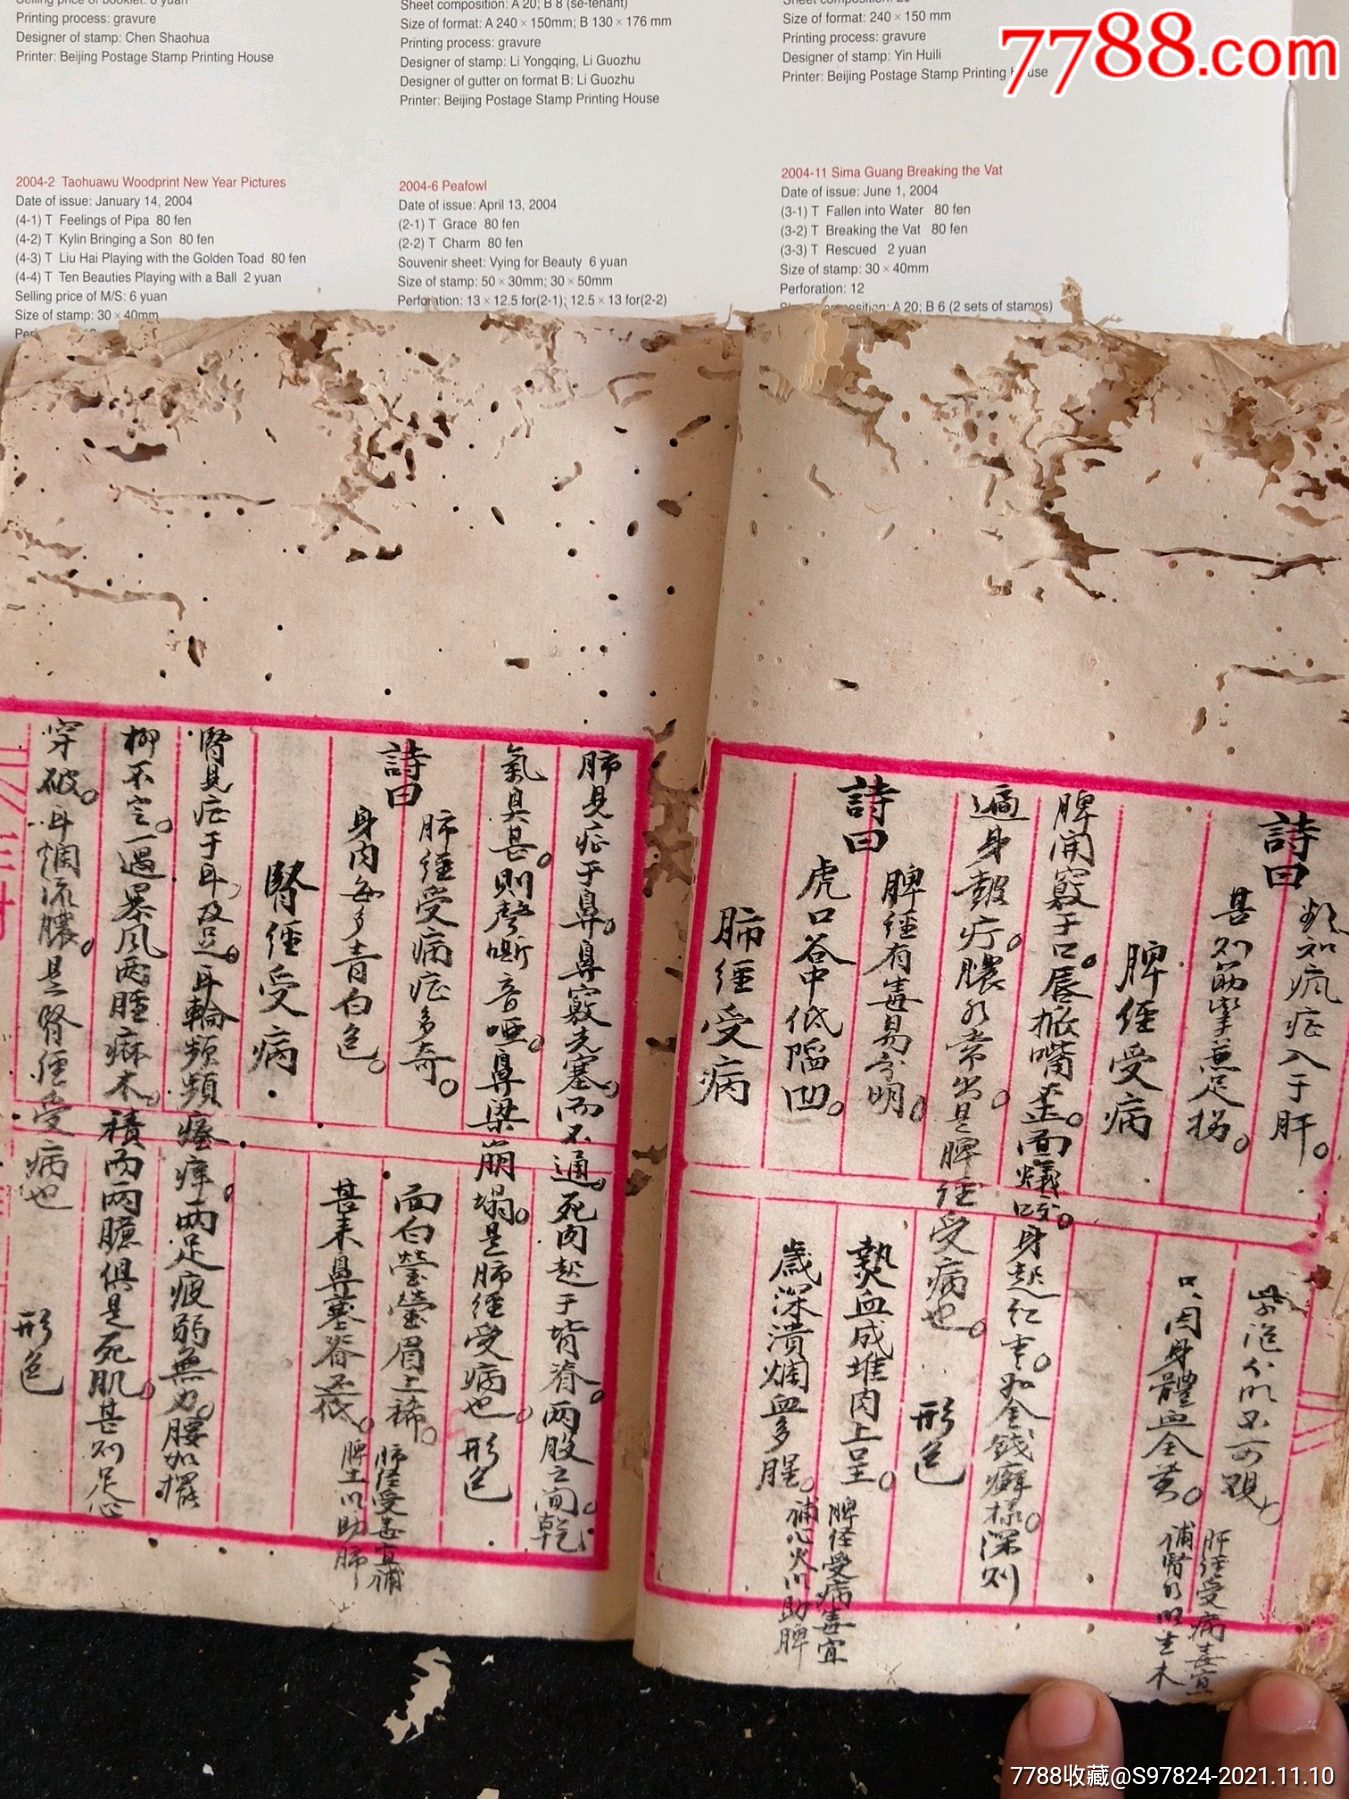 Selling price of booklet: 8 yuan
Printing process: gravure
Designer of stamp: Chen Shaohua
Printer: Beijing Postage Stamp Printing House
Sheet composition: A 20; B 8 (se-tenant)
Size of format: A 240 × 150mm; B 130 × 176 mm
Printing process: gravure
Designer of stamp: Li Yongqing, Li Guozhu
Designer of gutter on format B: Li Guozhu
Printer: Beijing Postage Stamp Printing House
Sheet composition: 20
Size of format: 240 × 150 mm
Printing process: gravure
Designer of stamp: Yin Huili
Printer: Beijing Postage Stamp Printing House
7788.com
2004-2 Taohuawu Woodprint New Year Pictures
Date of issue: January 14, 2004
(4-1) T Feelings of Pipa 80 fen
(4-2) T Kylin Bringing a Son 80 fen
(4-3) T Liu Hai Playing with the Golden Toad 80 fen
(4-4) T Ten Beauties Playing with a Ball 2 yuan
Selling price of M/S: 6 yuan
Size of stamp: 30 × 40mm
2004-6 Peafowl
Date of issue: April 13, 2004
(2-1) T Grace 80 fen
(2-2) T Charm 80 fen
Souvenir sheet: Vying for Beauty 6 yuan
Size of stamp: 50 × 30mm; 30 × 50mm
Perforation: 13 × 12.5 for(2-1); 12.5 × 13 for(2-2)
2004-11 Sima Guang Breaking the Vat
Date of issue: June 1, 2004
(3-1) T Fallen into Water 80 fen
(3-2) T Breaking the Vat 80 fen
(3-3) T Rescued 2 yuan
Size of stamp: 30 × 40mm
Perforation: 12
Sheet composition: A 20; B 6 (2 sets of stamps)
詩曰
知瘋症入于肝。紫泡不可觀
甚則筋攣兼足拐。只因身體血全黃。肝經受病毒宜補腎以生木
脾經受病
脾開竅于口。唇掀嘴歪。面。身起紅。如金錢癬樣。深則
遍身皷疔。膿水常出。是脾經受病也。形色
詩曰
脾經有毒易分明。熱血成堆肉上呈。脾經受病毒宜補心火以助脾
虎口谷中低陷凹。歲深潰爛血多腥。
肺經受病
肺見症于鼻。鼻竅先塞而不通。死肉起于背脊。兩股之間。乾
氣臭甚。則聲嘶音啞。鼻梁崩塌。是肺經受病也。形色
詩曰
肺經受病症多奇。面白瑩瑩眉上稀。肺經受毒宜補脾土以助肺
身內每多青白色。甚來鼻塞脊低。
腎經受病
腎見症于耳。及足。耳輪頻頻癢痒。兩足疲弱無力。腰如擺
柳不定。一遇暴風兩腫麻木。積而兩臆俱是死肌。甚則足心
穿破。耳爛流膿。是腎經受病也 形色
7788收藏@S97824-2021.11.10